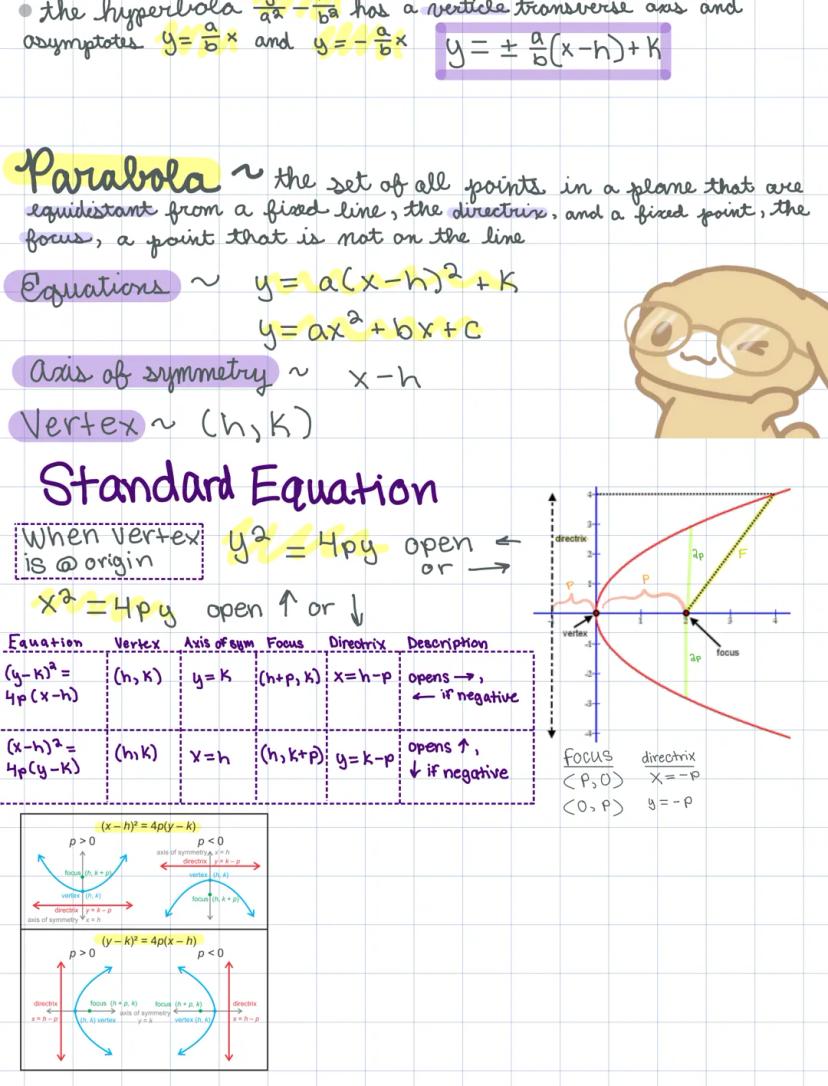 the hyperbola y²/a² - x²/b² has a verticle transverse axis and
asymptotes y = a/b x and y = - a/b x y = ± a/b (x-h)+k
Parabola ~ the set of all points in a plane that are
equidistant from a fixed line, the directrix, and a fixed point, the
focus, a point that is not on the line
Equations ~ y = a(x-h)² + k
y = ax² + bx + c
axis of symmetry ~ x-h
Vertex ~ (h,k)
Standard Equation
When vertex
is @ origin
y² = 4py open ←
or →
x² = 4py open ↑ or ↓
directrix
P
P
2p
F
2p
vertex
focus
4
3
2
1
-1
-2
-3
-4
-1
1
2
3
4
Equation Vertex Axis of sym Focus Directrix Description
(y-k)² = 4p(x-h) (h,k) y = k (h+p, k) x = h-p opens →, ← if negative
(x-h)² = 4p(y-k) (h,k) x = h (h, k+p) y = k-p opens ↑, ↓ if negative
focus directrix
(P,0) x = -p
(0,P) y = -p
(x – h)² = 4p(y – k)
p > 0 p < 0
focus (h, k + p)
vertex (h, k)
directrix y = k – p
axis of symmetry x = h
axis of symmetry x = h
directrix y = k – p
vertex (h, k)
focus (h, k + p)
(y – k)² = 4p(x – h)
p > 0 p < 0
directrix
x = h – p
focus (h + p, k)
(h, k) vertex
axis of symmetry
y = k
focus (h + p, k)
vertex (h, k)
directrix
x = h – p